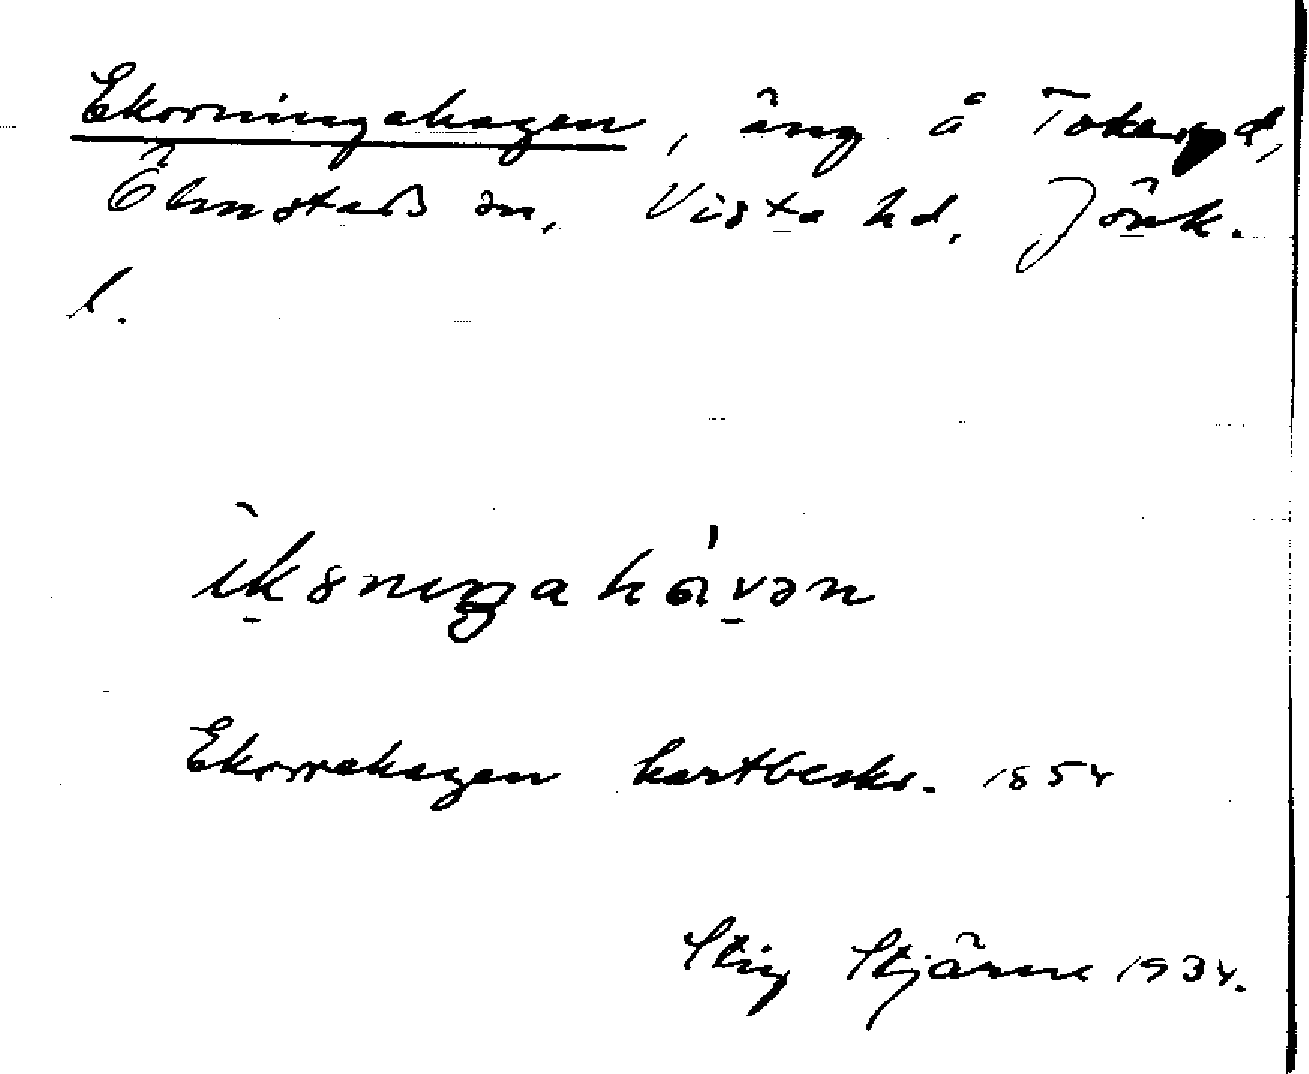 Ekorningahagen, äng å Tokeryd,
Ölmstads sn, Vista hd, Jönk.
l.
Ekorrehagen kartbeskr. 1854
Stig Stjärne 1934.